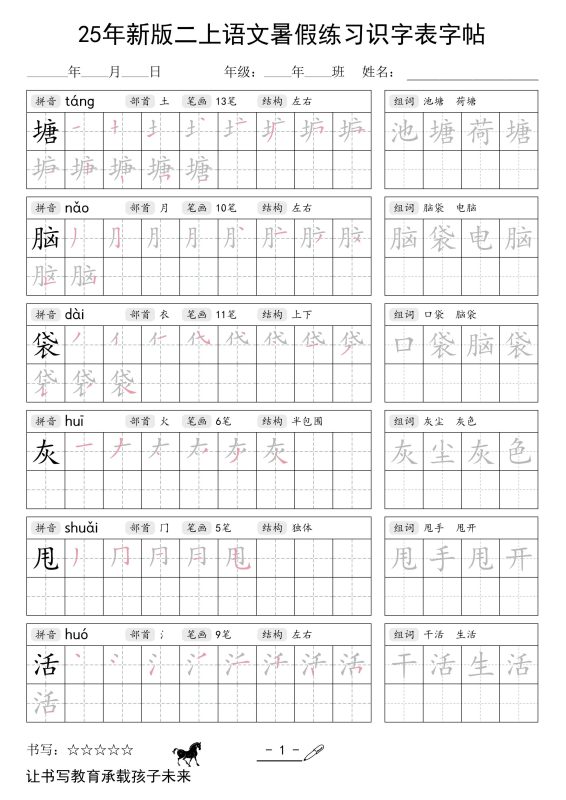 25年新版二上语文暑假练习识字表字帖
____年____月____日 年级：____年____班 姓名：________
拼音 táng 部首 土 笔画 13笔 结构 左右
塘
组词 池塘 荷塘
池塘荷塘
拼音 nǎo 部首 月 笔画 10笔 结构 左右
脑
组词 脑袋 电脑
脑袋电脑
拼音 dài 部首 衣 笔画 11笔 结构 上下
袋
组词 口袋 脑袋
口袋脑袋
拼音 huī 部首 火 笔画 6笔 结构 半包围
灰
组词 灰尘 灰色
灰尘灰色
拼音 shuǎi 部首 冂 笔画 5笔 结构 独体
甩
组词 甩手 甩开
甩手甩开
拼音 huó 部首 氵 笔画 9笔 结构 左右
活
组词 干活 生活
干活生活
书写：☆☆☆☆☆
- 1 -
让书写教育承载孩子未来